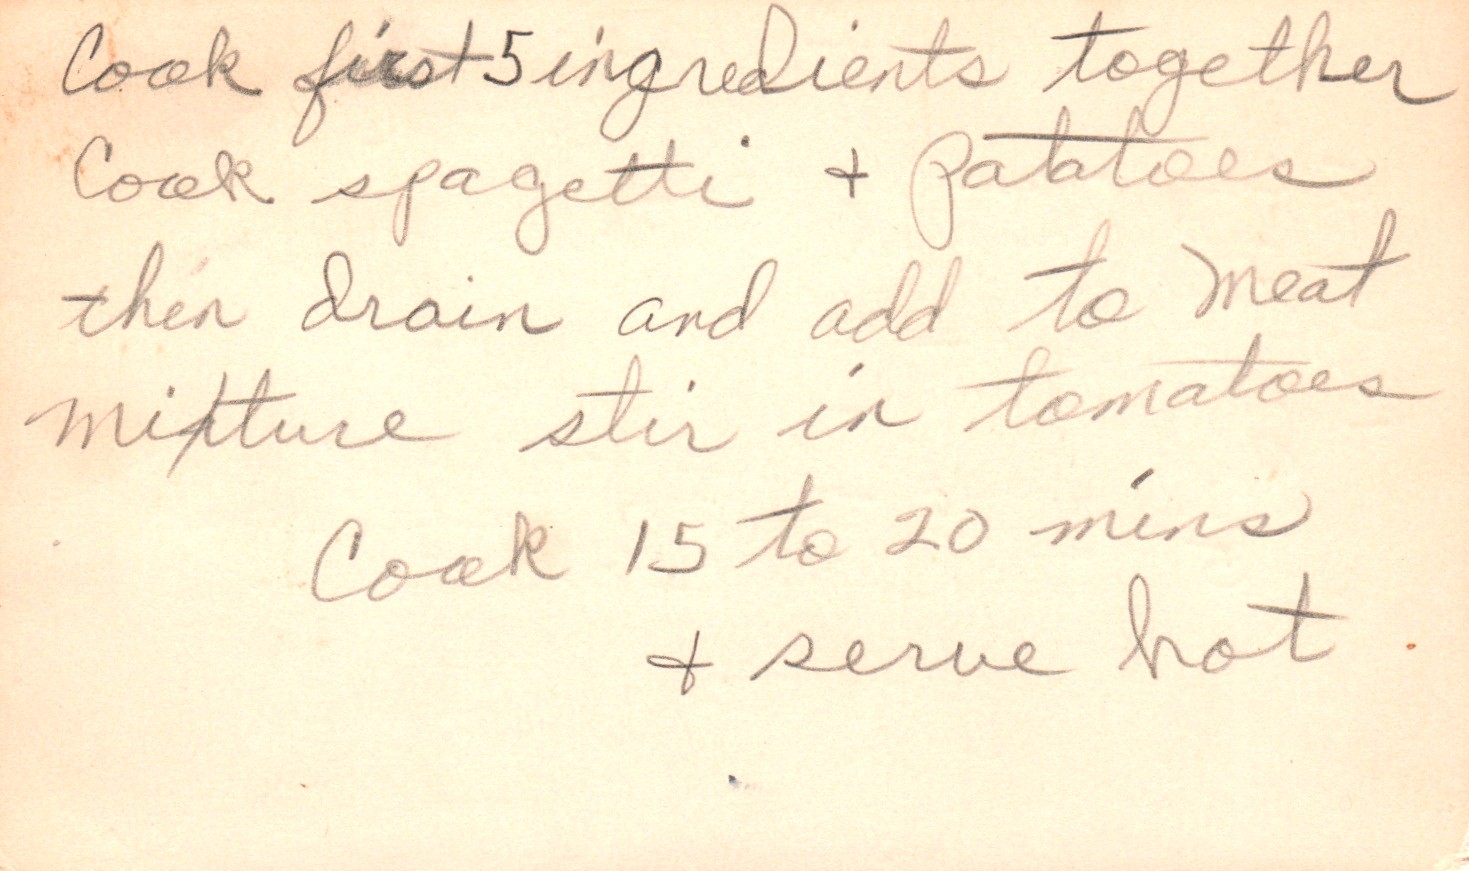 Cook first 5 ingredients together
Cook spagetti + patatoes
then drain and add to meat
mixture stir in tomatoes
Cook 15 to 20 mins
+ serve hot